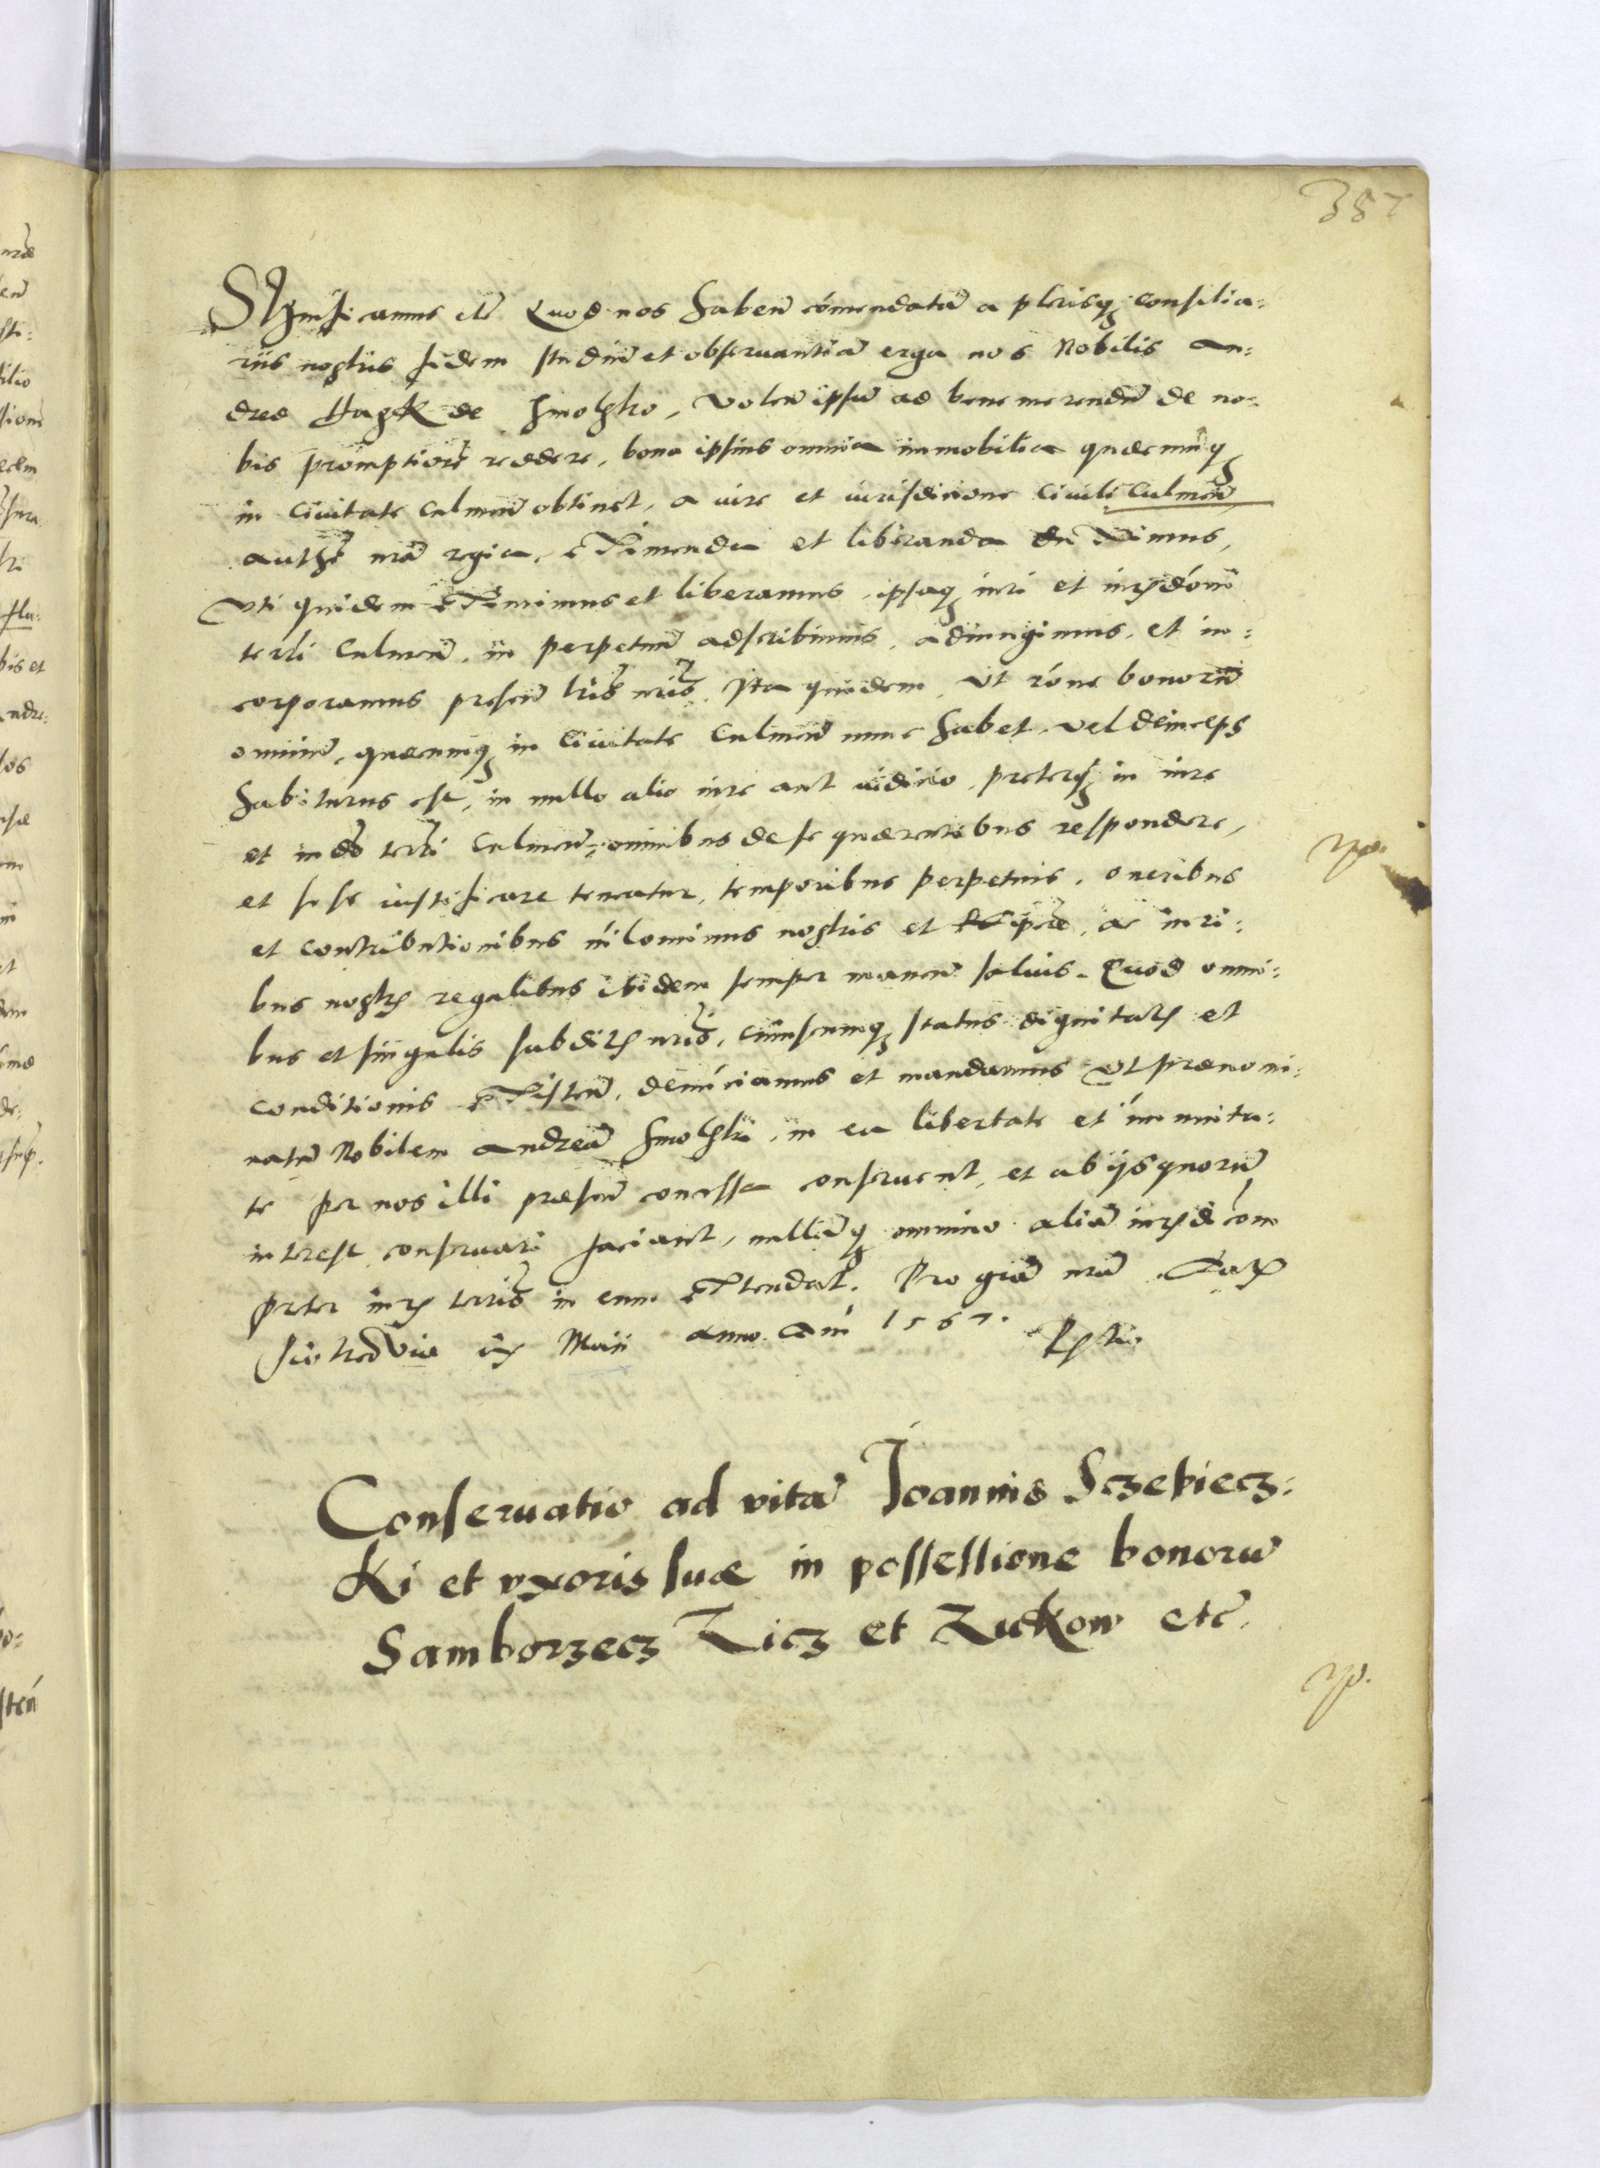 387
Significamus etc̃ Quod nos haben̄ cōmendatā a plerisq; consilia:
riis nostris fidem studiū et obseruantiā erga nos Nobilis An:
dreæ de Smolsko, volen̄ ipsū ad bene merendū de no:
bis promptiorē reddere, bona ipsius omnia immobilia quæcunq;
in Ciuitate Culmen̄ obtinet, a iure et iurisdicione Ciuili Culmen̄
authē nrā regia, eximenda et liberanda duximus,
Vti quidem eximimus et liberamus, ipsaq; iuri et iurisdōni
terrli Culmen̄, in perpetuū adscribimus, adiungimus, et in:
corporamus presen̄ lris nris, Ita quidem, Ut rōne bonorū
omniū, quæcunq; in Ciuitate Culmen̄ nunc habet, vel deinceps
habiturus est, in nullo alio iure aut iudicio, preterq; in iure
et iudō terrli Culmen̄, omnibus de se quærentibus respondere,
et se se iustificare teneatur, temporibus perpetuis, oneribus
et contributionibus nilominus nostris et Reipcæ, ac iuri:
bus nostris regalibus ibidem semper manen̄ saluis. Quod omni:
bus et singulis subditis nris, cuiuscunq; status dignitatis et
conditionis existen̄, denunciamus et mandamus Ut prænomi:
natū Nobilem Andreā Smolski, in ea libertate et immunita:
te per nos illi præsen̄ concessa conseruent, et ab ijs quorū
interest conseruari faciant, nullāq; omnino aliā iurisdicōm
preter iuris terris in eum extendat. Pro grā nrā
Piotrcouiæ Maii anno dni 1567.
Conseruatio ad vitā Joannis Sczebiecz:
ki et vxoris suæ in possessione bonorū
Samborzecz Zicz et Zuckow etc̃.